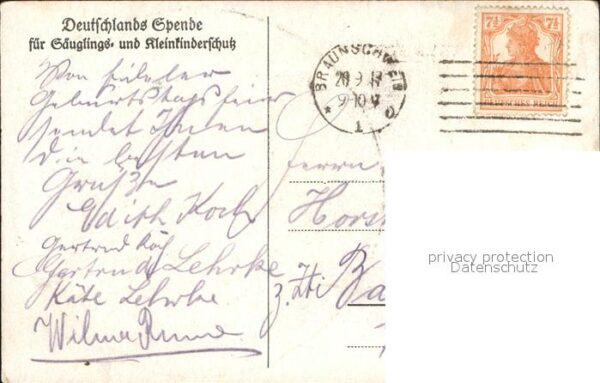 Deutschlands Spende
für Säuglings- und Kleinkinderschutz
Von fideler
Geburtstagsfeier
sendet Ihnen
die besten
Grüße
Edith Koch
Gertrud Koch
Gertrud Lehrke
Käte Lehrke
Wilma
BRAUNSCHWEIG
9-10 V
* 1 c
7½ 7½
DEUTSCHES REICH
Herrn
Horst
z. Zt. Ba
privacy protection
Datenschutz